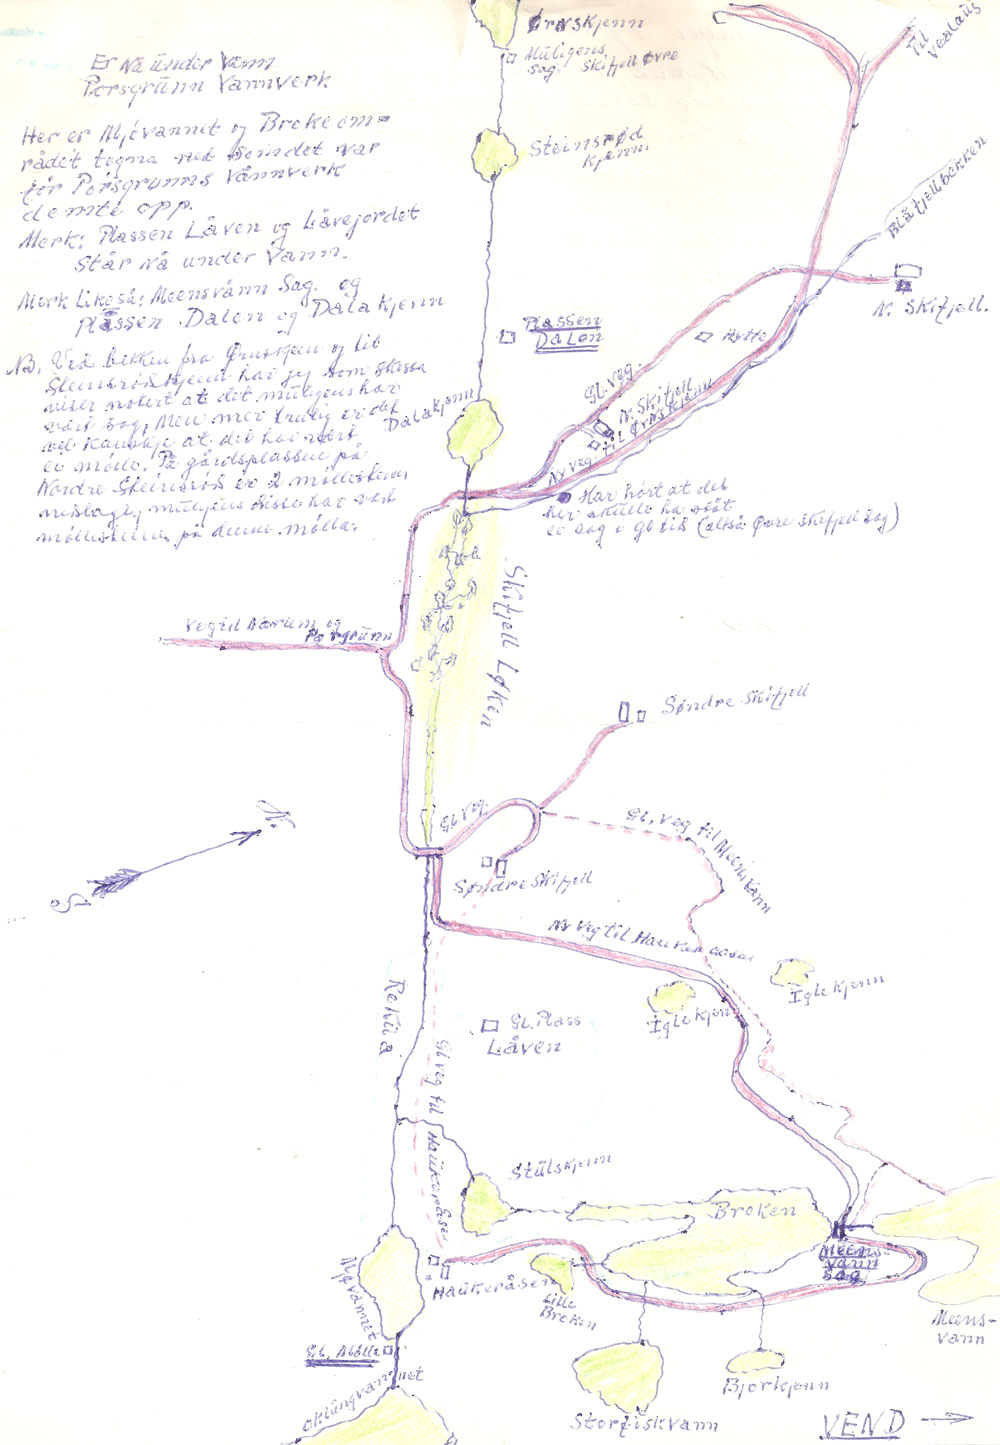 Er Nå under Vann
Porsgrunn Vannverk
Her er Mjövannet og Brokeom-
rådet tegna ned Som det var
för Porsgrunns Vånnverk
demte opp.
Merk: Plassen Låven og Låvejordet
Står nå under Vann.
Merk Likeså: Meensvånn Sag. og
Plassen Dalen og Dalakjenn
NB. Ved bekken fra Ørnskjenn og til
Steinsrødkjenn har jeg som skissa
viser notert at det muligens har
vært sag, Men mer trulig er det
vel kanskje at det har vært
ei mølle. På gårdsplassen på
Nordre Steinsrød er 2 møllesteiner
muligens disse har vært
møllesteiner på denne mølla.
Ørnskjenn
Muligens
Sag. Skifjell Øvre
Til
Vealaus
Steinsrød
kjenn.
Blåfjellbekken
N. Skifjell.
Plassen
Dalen
Hytte
Gl. veg.
N. Skifjell
Ny veg til Ørnskjenn
Dalakjenn
Har hört at det
her skulle ha stått
ei sag i gl. tid (altså Øvre Skifjell Sag)
Skifjell Løken
Vegtil Nørum og
Porsgrunn
Søndre Skifjell
Gl. Veg.
Gl. Veg til Meensvann
N.
S.
Søndre Skifjell
Ny Veg til Haukeraasen
Iglekjenn
Iglekjenn
Rekua
Gl. Plass
Låven
Gl veg til Haukeråsen
Stulskjenn
Broken
Meens-
vann
Sag
Haukeråsen
Lille
Broken
Meens-
vann
Gl. Mölle
Oklungvannet
Bjorkjenn
Storfiskvann
VEND